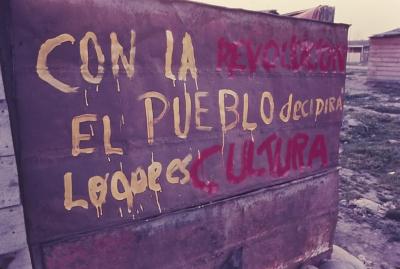 CON LA REVOLUCION
EL PUEBLO decipirá
Loque es CULTURA